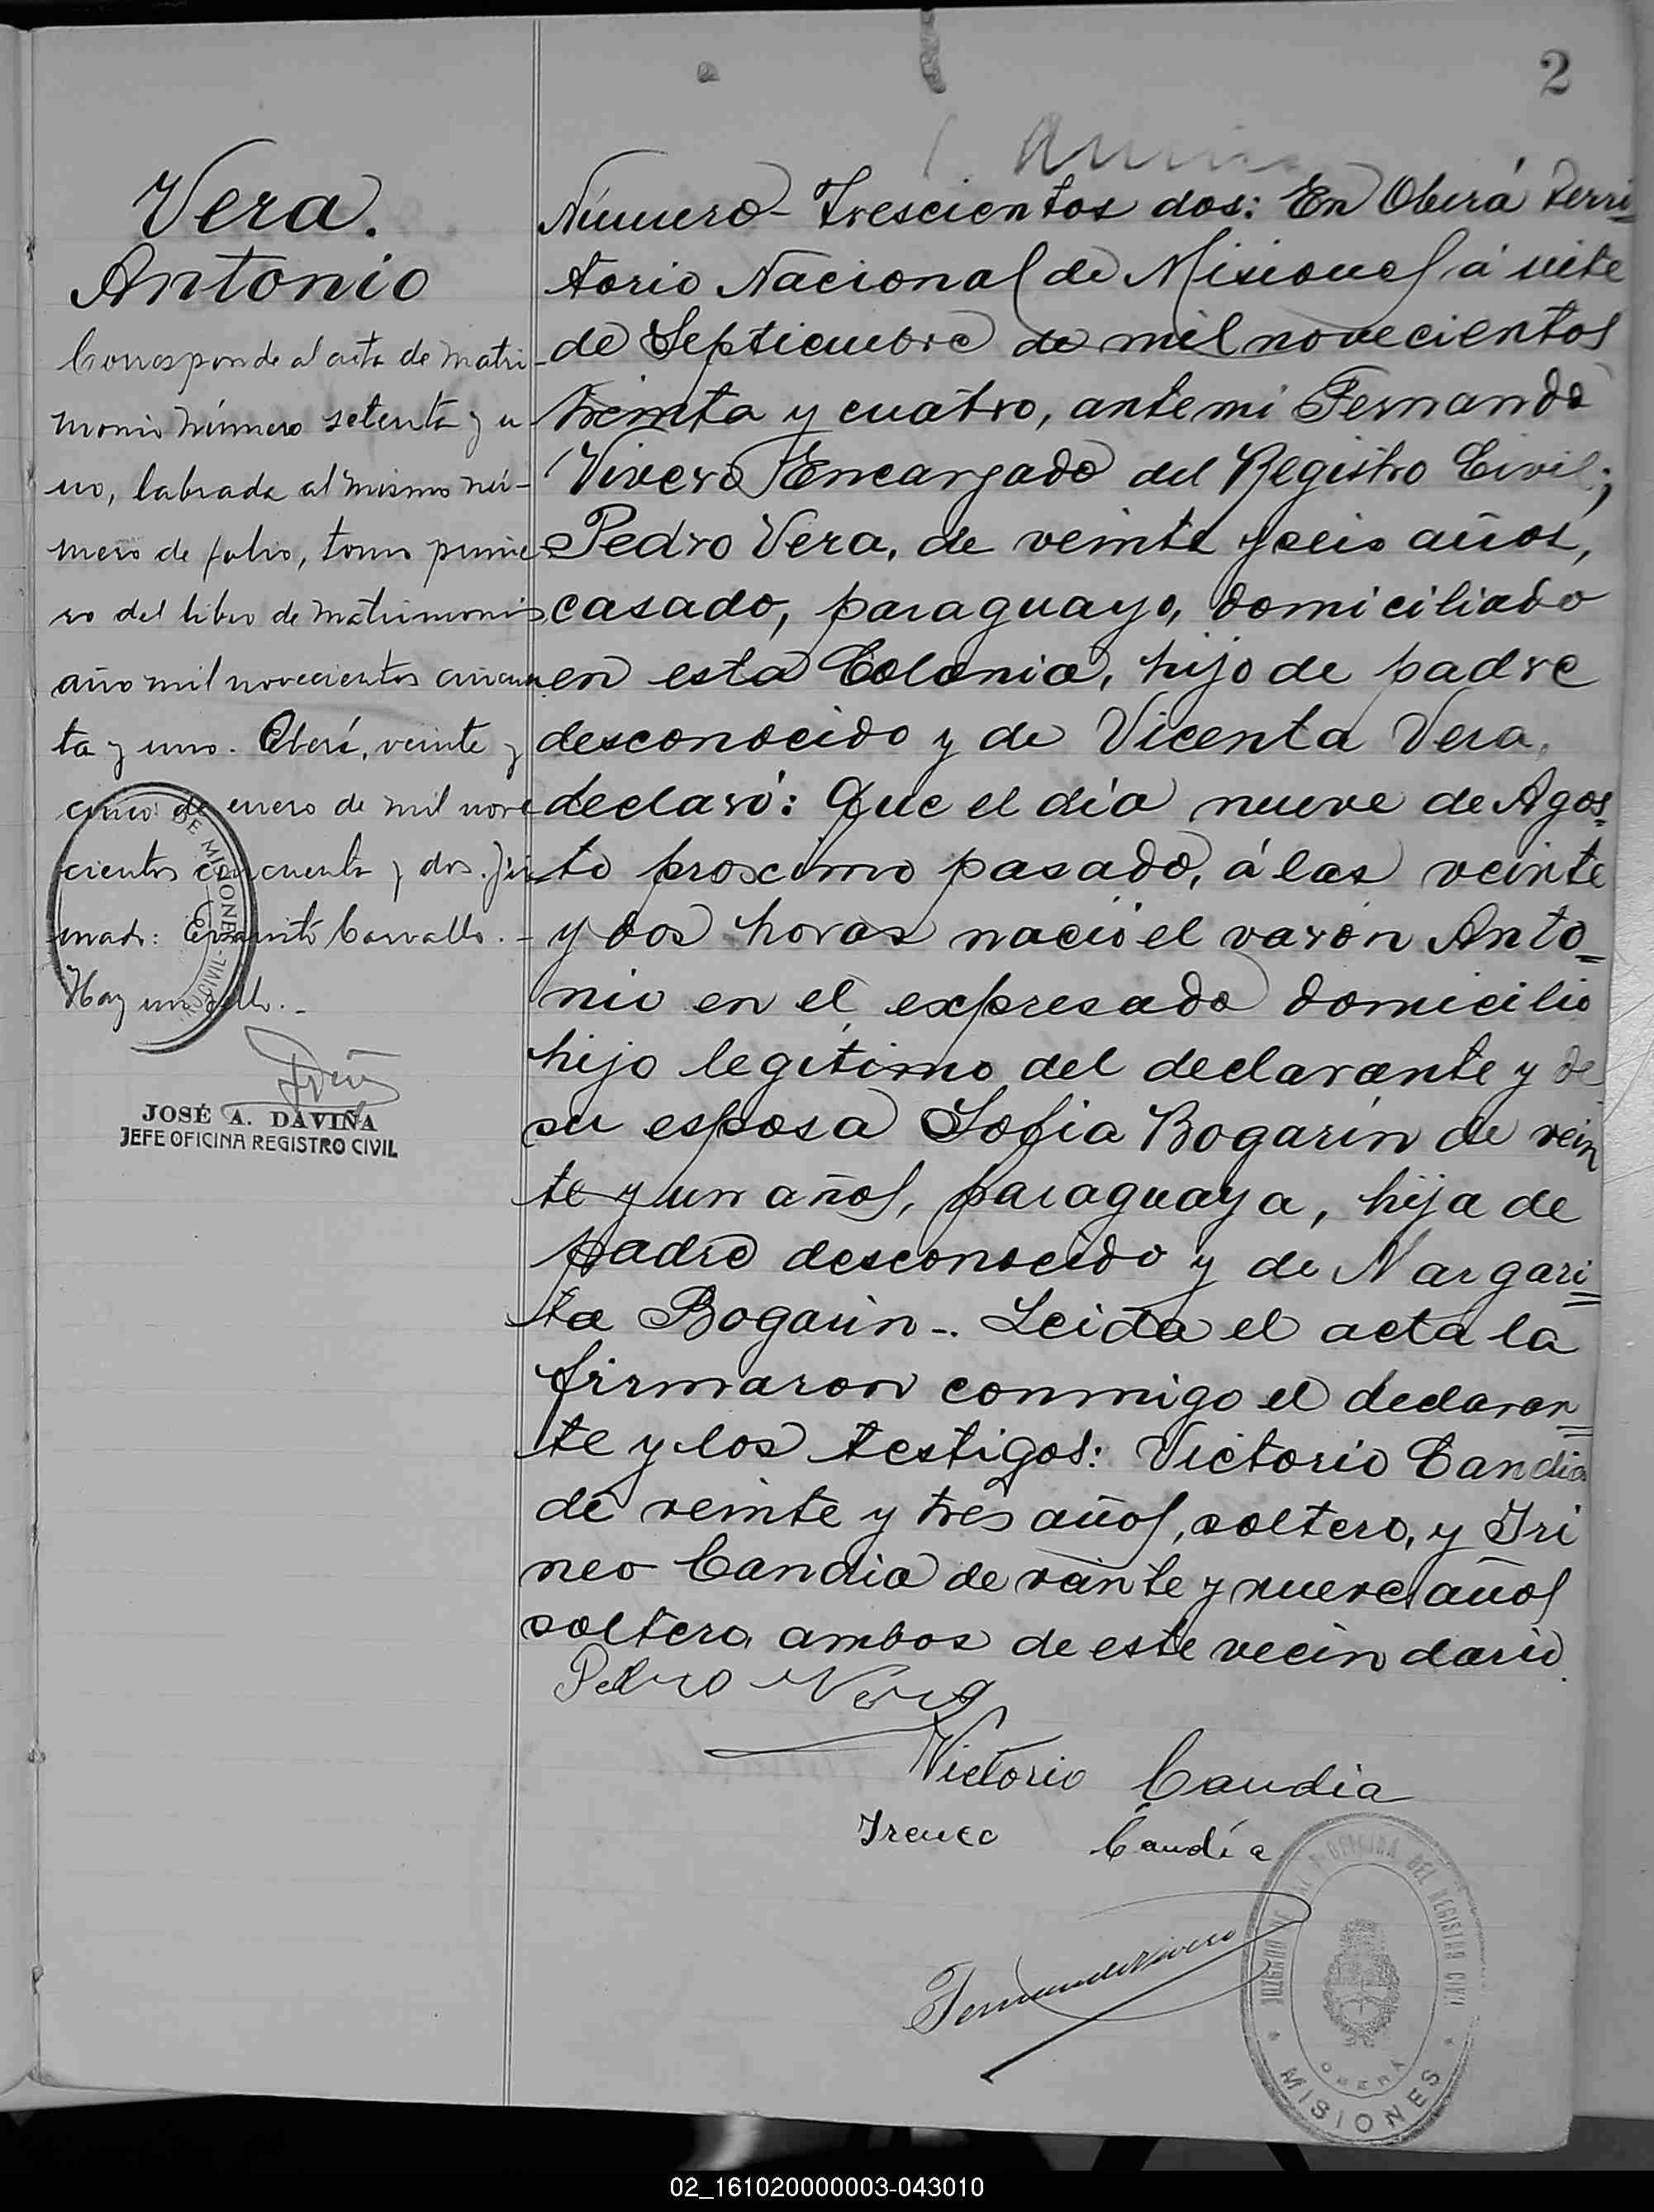 2
Vera.
Antonio
Corresponde al acta de Matri-
monio Número setenta y u
no, labrada al mismo nú-
mero de folio, tomo prime
ro del libro de Matrimonio
año mil novecientos cincuen
ta y uno. Oberá, veinte y
cinco de enero de mil nove
cientos cincuenta y dos. Fir
mado: Carvallo. -
Hay un sello. -
DE MISIONES
CIVIL
JOSÉ A. DAVIÑA
JEFE OFICINA REGISTRO CIVIL
Número - Trescientos dos: En Oberá Terri
torio Nacional de Misiones á siete
de Septiembre de mil novecientos
treinta y cuatro, ante mi Fernando
Vivero Encargado del Registro Civil;
Pedro Vera, de veinte y seis años,
casado, paraguayo, domiciliado
en esta Colonia, hijo de padre
desconocido y de Vicenta Vera,
declaró: Que el día nueve de Agos=
to proscimo pasado, á las veinte
y dos horas nació el varón Anto=
nio en el expresado domicilio
hijo legitimo del declarante y de
su esposa Sofia Bogarin de vein
te y un años, paraguaya, hija de
padre desconocido y de Margari=
ta Bogarin -. Leida el acta la
firmaron conmigo el declaran=
te y los testigos: Victorio Candia
de veinte y tres años, soltero, y Iri
neo Candia de veinte y nueve años
soltero ambos de este vecindario.
Pedro Vera
Victorio Candia
Ireneo Candía
Fernando Vivero
JUZGADO DE PAZ Y OFICINA DEL REGISTRO CIVIL
OBERÁ
* MISIONES *
02_161020000003-043010